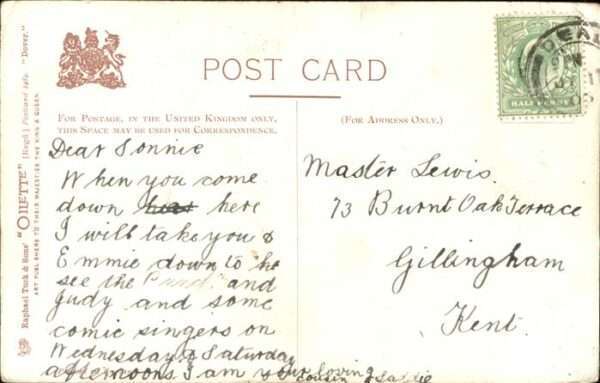 POST CARD
FOR POSTAGE, IN THE UNITED KINGDOM ONLY,
THIS SPACE MAY BE USED FOR CORRESPONDENCE.
(FOR ADDRESS ONLY.)
Raphael Tuck & Sons' "OILETTE" [Regd.] Postcard "Dover."
ART PUBLISHERS TO THEIR MAJESTIES THE KING & QUEEN.
HALF PENNY
DEAL
Dear Sonnie
When you come
down here
I will take you &
Emmie down to the
see the Punch and
Judy and some
comic singers on
Wednesday & Saturday
afternoons. I am your loving
cousin Sadie
Master Lewis.
73 Burnt Oak Terrace
Gillingham
Kent.